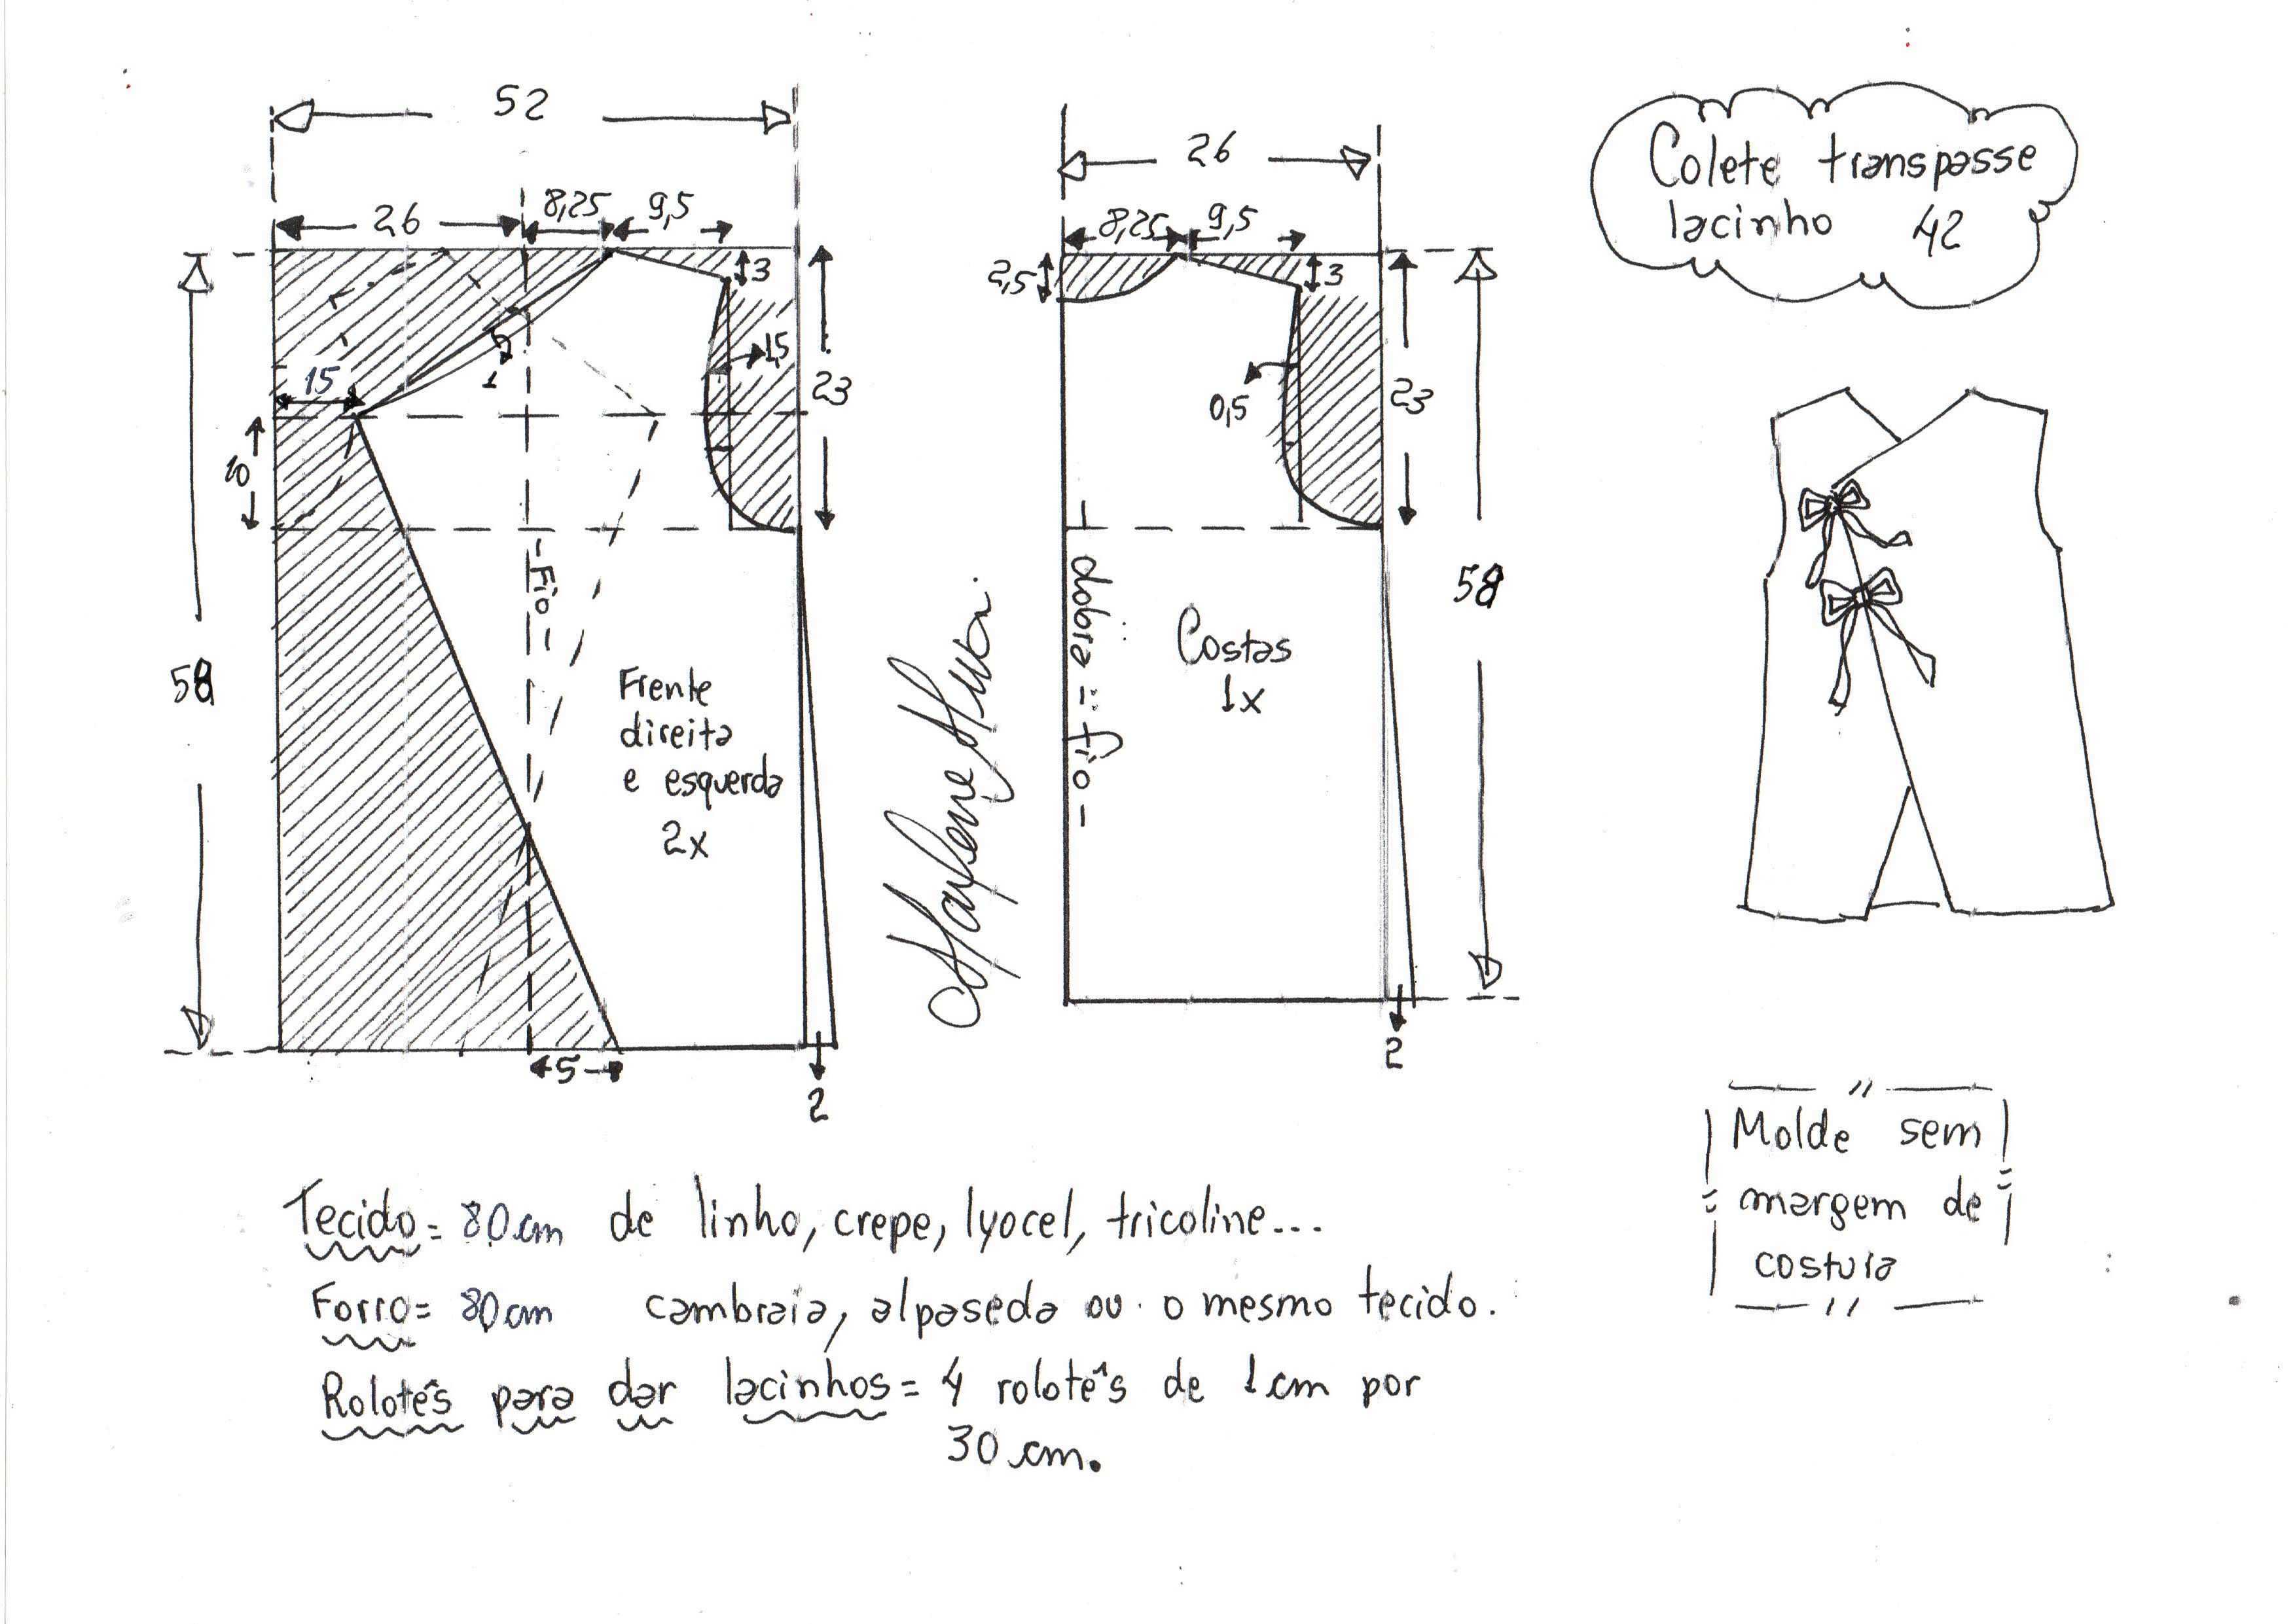 52
26
8,25
9,5
3
1,5
23
15
1
10
58
- Fio -
Frente
direita
e esquerda
2x
5
2
26
8,25
9,5
2,5
3
0,5
23
58
dobra = fio -
Costas
1x
2
Colete transpasse
lacinho 42
Molde sem
margem de
costura
Tecido = 80cm de linho, crepe, lyocel, tricoline...
Forro = 80cm cambraia, alpaseda ou o mesmo tecido.
Rolotês para dar lacinhos = 4 rolotês de 1cm por
30 cm.